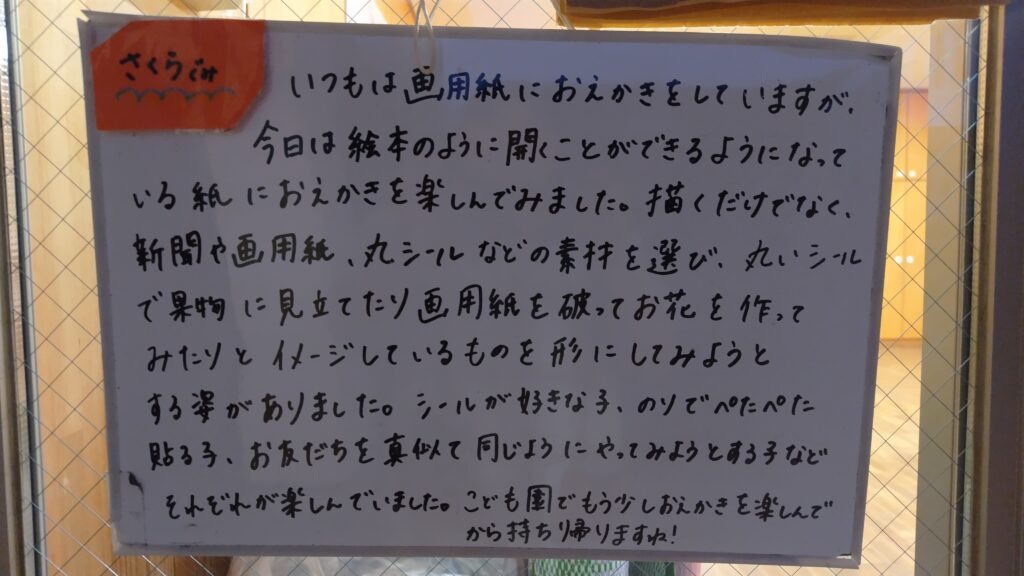 さくらぐみ
いつもは画用紙におえかきをしていますが、
今日は絵本のように開くことができるようになって
いる紙におえかきを楽しんでみました。描くだけでなく、
新聞や画用紙、丸シールなどの素材を選び、丸いシール
で果物に見立てたり画用紙を破ってお花を作って
みたりとイメージしているものを形にしてみようと
する姿がありました。シールが好きな子、のりでぺたぺた
貼る子、お友だちを真似て同じようにやってみようとする子など
それぞれが楽しんでいました。こども園でもう少しおえかきを楽しんで
から持ち帰りますね!